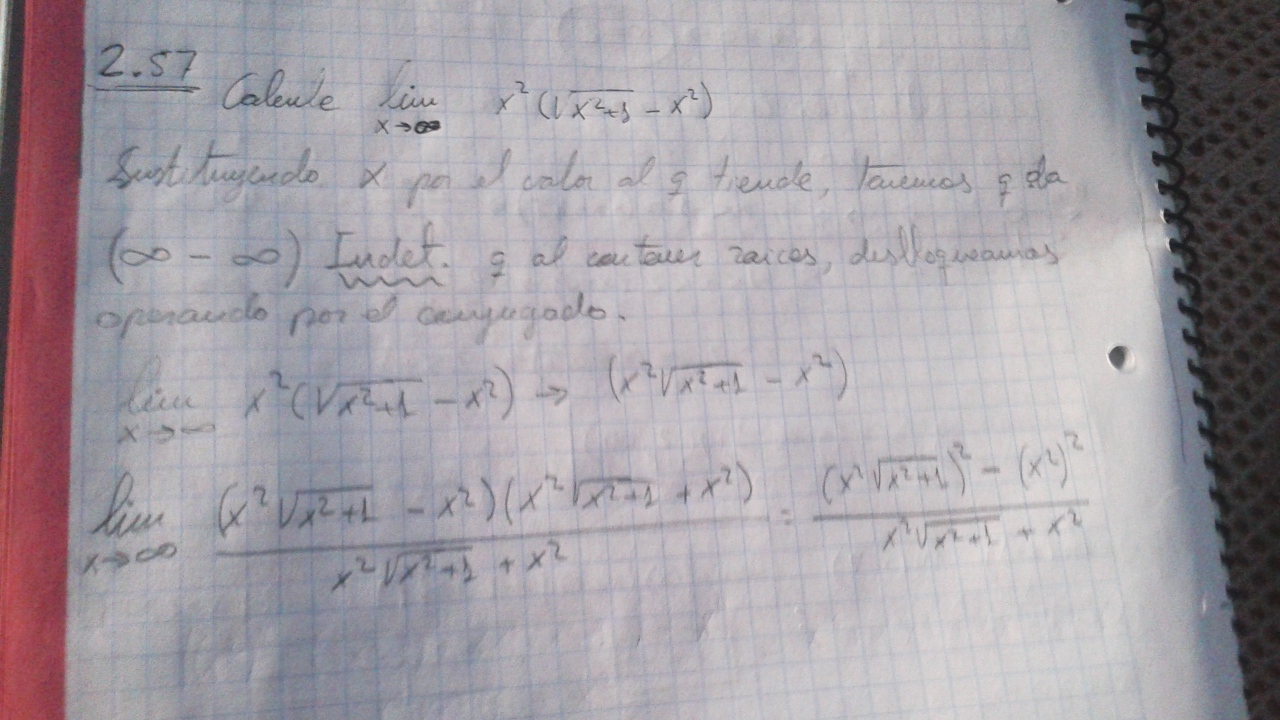 2.57 Calcule lim x→∞ x² (√x²+1 - x²)
Sustituyendo x por el valor al q tiende, tenemos q da
(∞ - ∞) Indet. q al contener raices, desbloqueamos
operando por el conjugado.
lim x→∞ x² (√x²+1 - x²) → (x²√x²+1 - x²)
lim x→∞ (x²√x²+1 - x²)(x²√x²+1 + x²) / x²√x²+1 + x² = (x²√x²+1)² - (x²)² / x²√x²+1 + x²